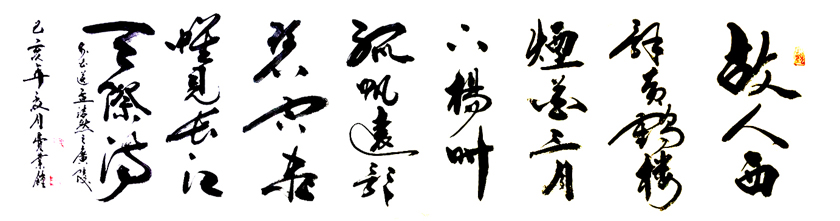 故人西
辞黄鹤楼
煙花三月
下楊州
孤帆遠影
碧空尽
唯見长江
天際流
李白送孟浩然之廣陵
己亥年夏月